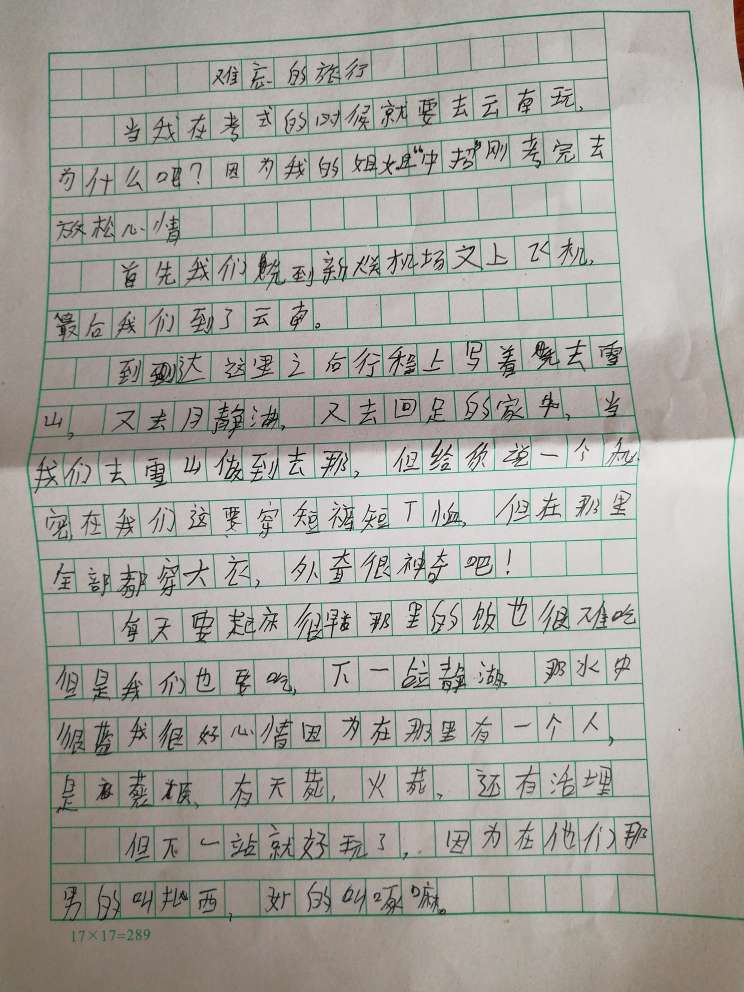 难忘的旅行
当我在考式的时候就要去云南玩,
为什么吧?因为我的姐姐"中招"刚考完去
放松心情
首先我们先到新 机场又上飞机,
最后我们到了云南。
到到达这里之后行程上写着先去雪
山,又去月静海,又去回足的家中,当
我们去雪山做到去那,但给你说一个秘
密在我们这要穿短裤短T恤,但在那里
全部都穿大衣,外查很神奇吧!
每天要起床很早 那里的饭也很难吃
但是我们也要吃,下一站静湖 那水中
很蓝我很好心情因为在那里有一个人,
是 葬 ,有天葬,火葬,还有活埋
但下一站就好玩了,因为在他们那
男的叫扎西,女的叫啄嘛。
17×17=289